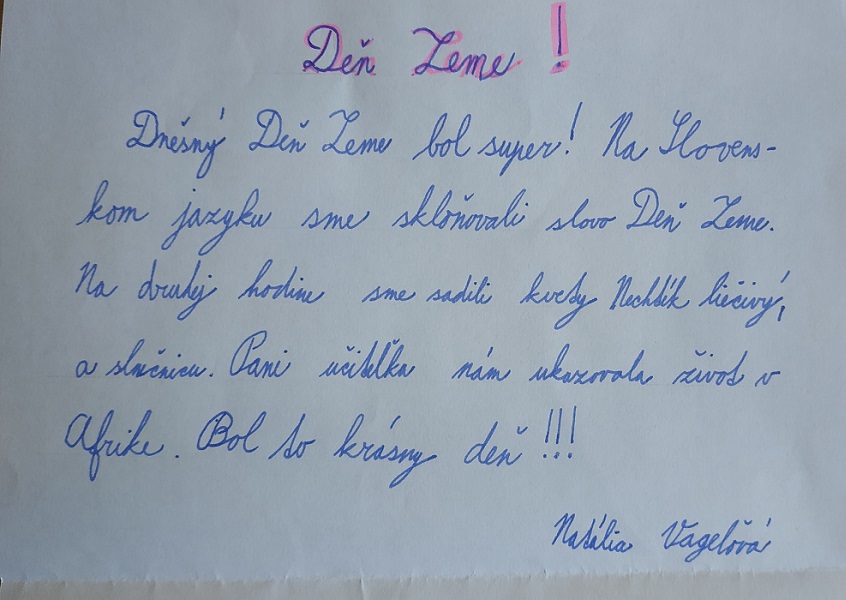 Deň Zeme !
Dnešný Deň Zeme bol super! Na Sloven-
kom jazyku sme skloňovali slovo Deň Zeme.
Na druhej hodine sme sadili kvety Nechtík liečivý,
a slnečnicu. Pani učiteľka nám ukazovala život v
Afrike. Bol to krásny deň !!!
Natália Vagelová